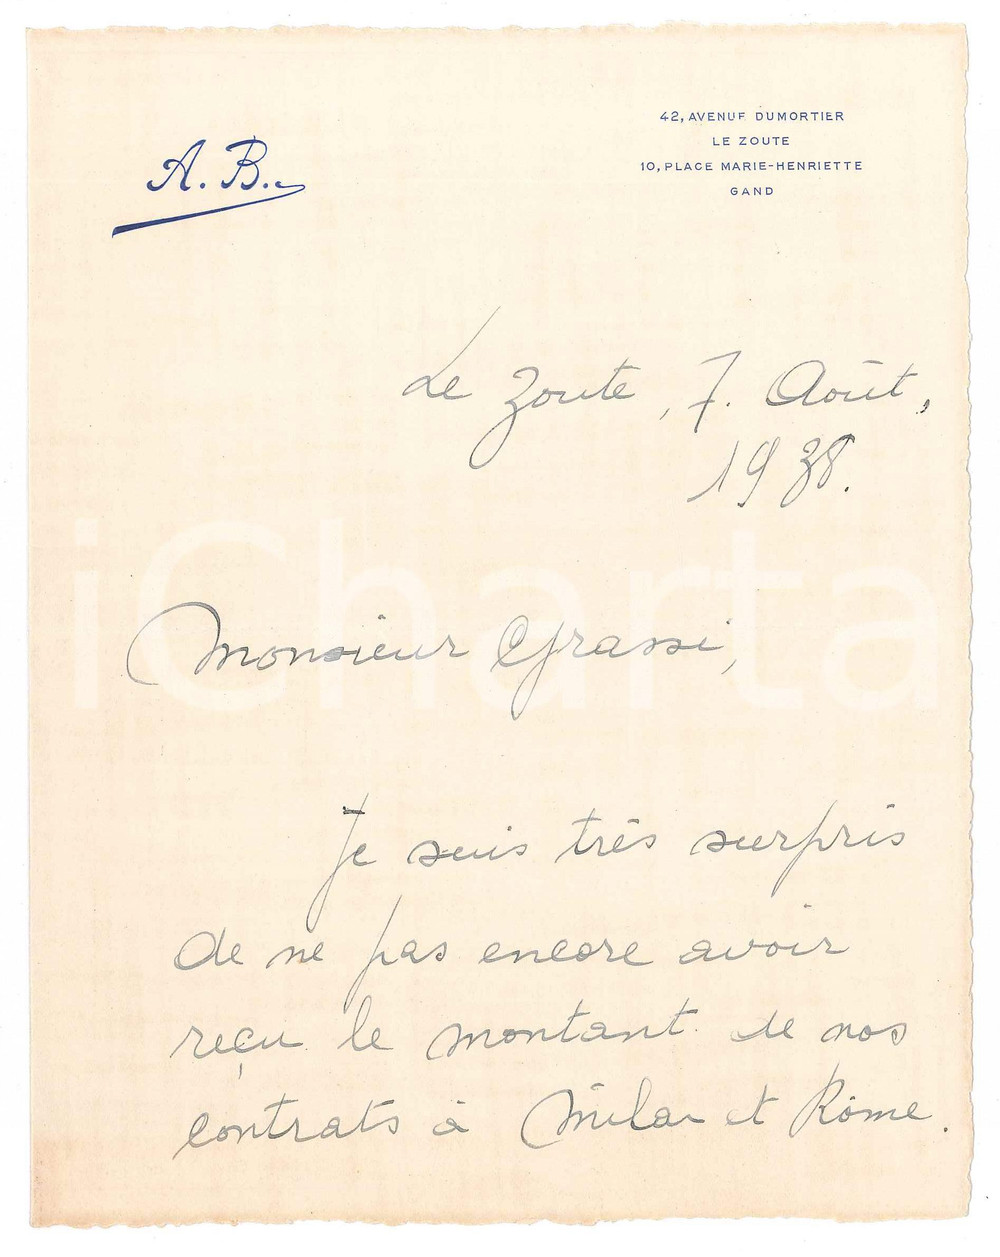 A. B.
42, AVENUE DUMORTIER
LE ZOUTE
10, PLACE MARIE-HENRIETTE
GAND
Le Zoute, 7. Août,
1938.
iCharta
Monsieur Grassi,
Je suis très surpris
de ne pas encore avoir
reçu le montant de nos
contrats à Milan et Rôme.